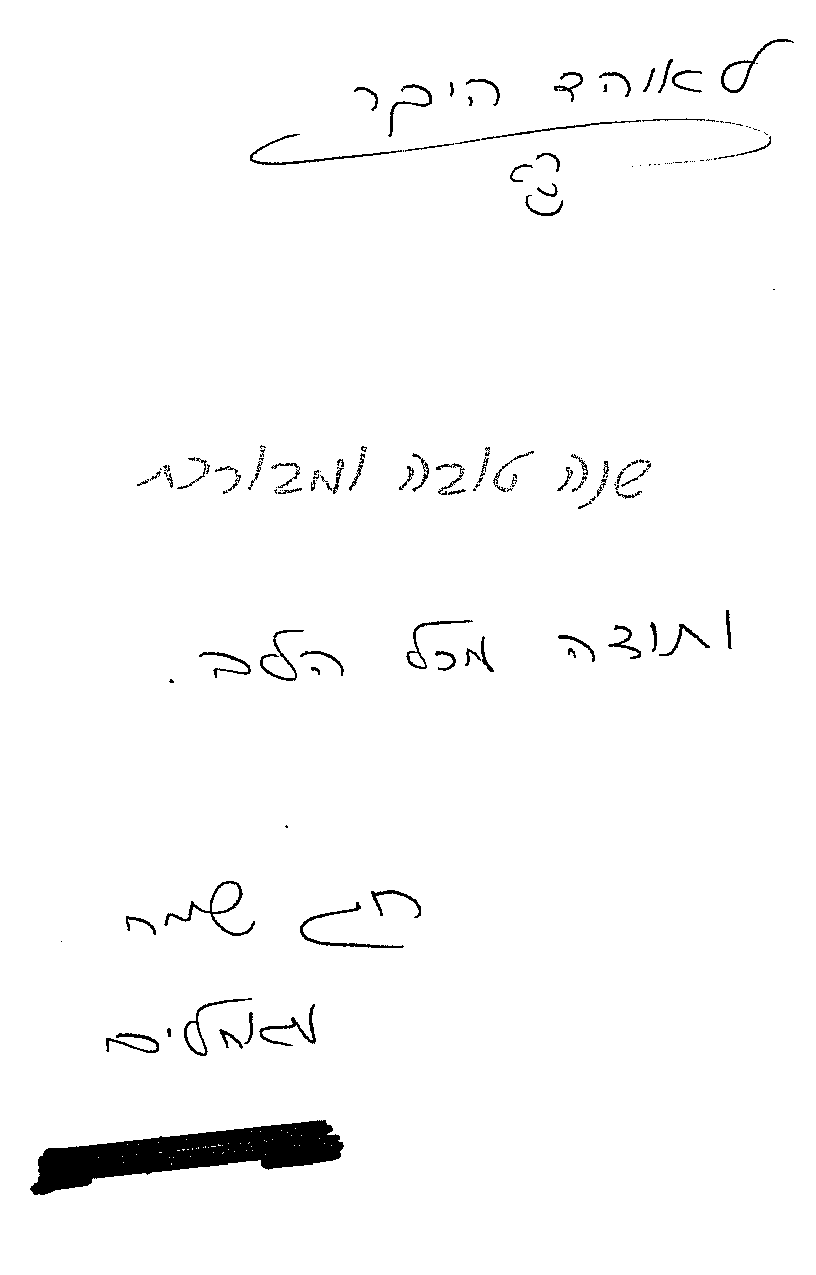 לאוהד היקר
שנה טובה ומבורכת
ותודה מכל הלב.
חג שמח
מאחלים